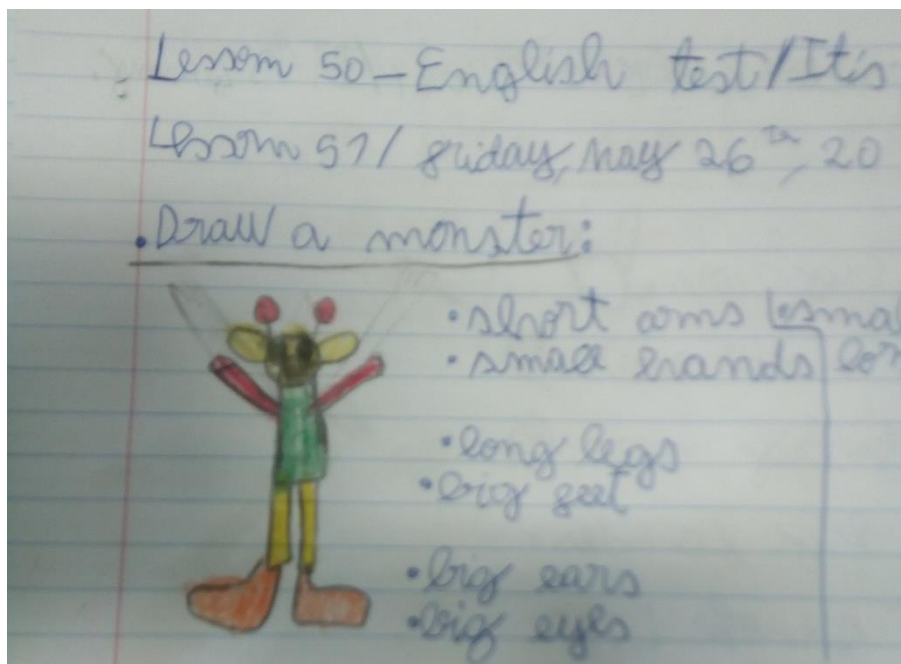 Lessom 50 - English test/It is
Lessom 51/ friday, may 26th, 20
• Draw a monster:
• short arms
• small hands
• long legs
• big feet
• big ears
• big eyes